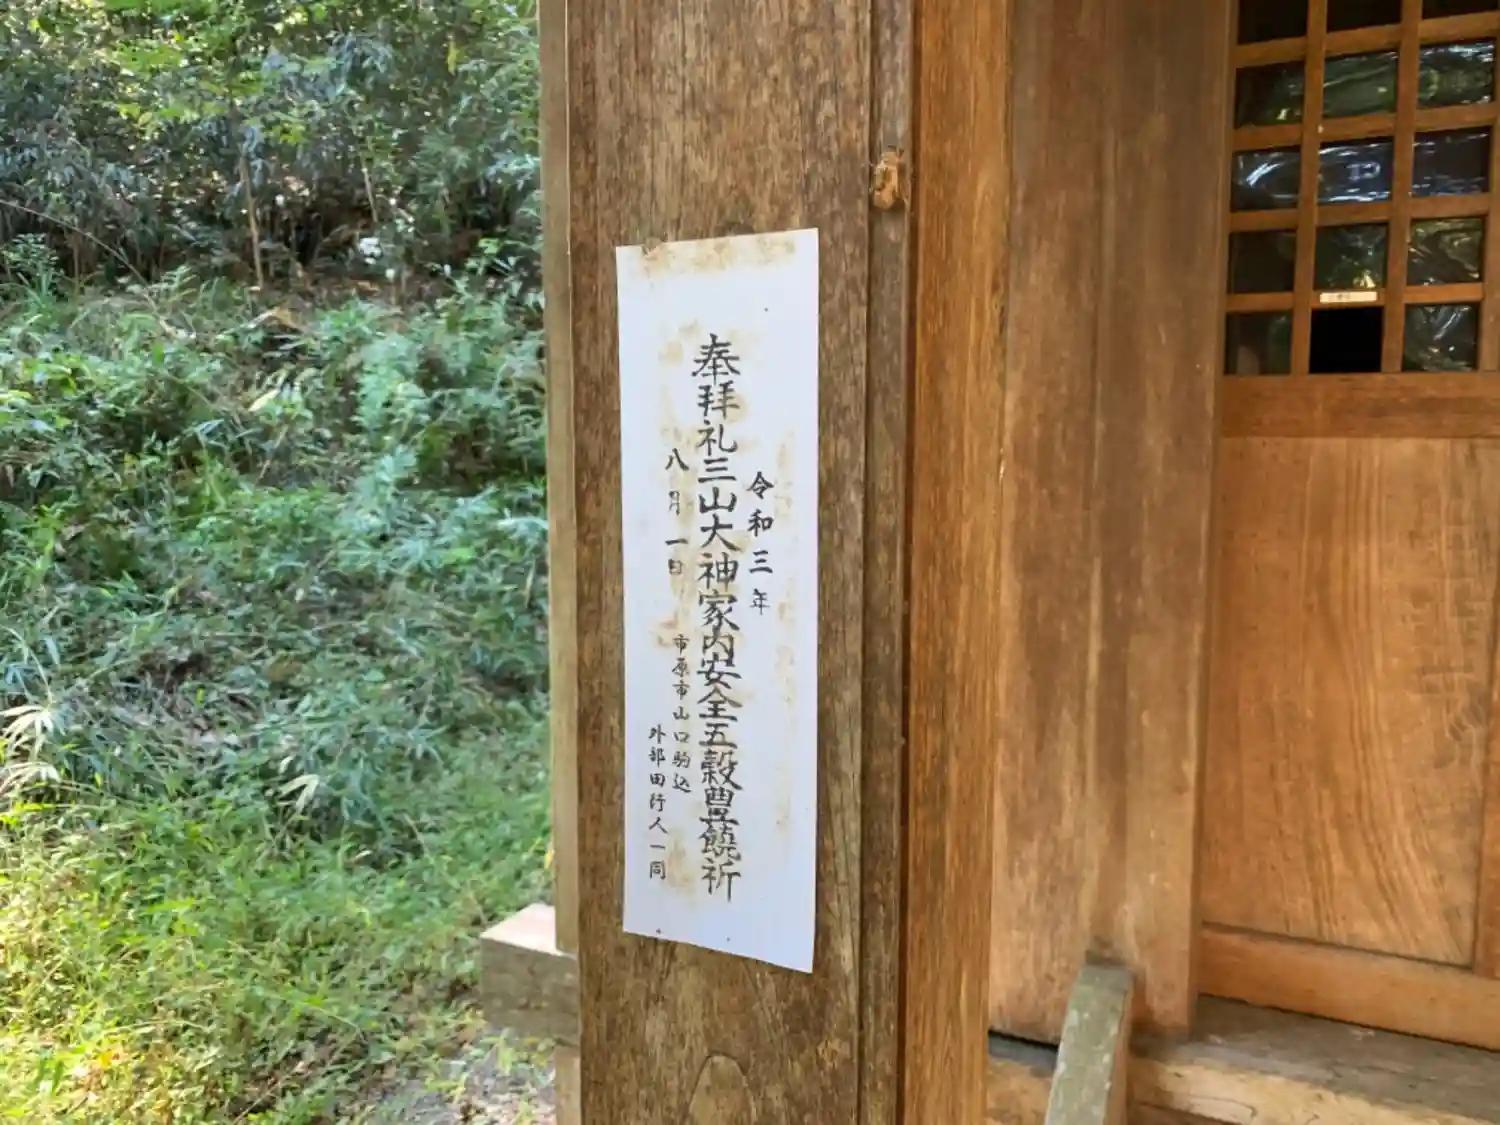 令和三年
奉拝礼三山大神家内安全五穀豊饒祈
八月一日
市原市山口駒込
外部田行人一同